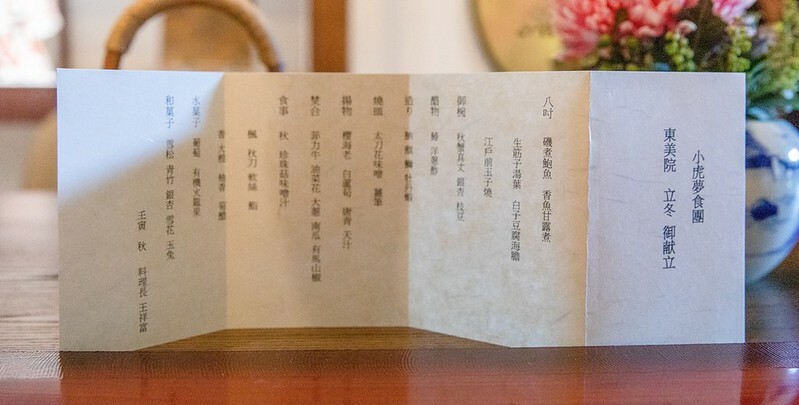 小虎夢食團
東美院　立冬　御献立
八吋　磯煮鮑魚　香魚甘露煮
生筋子湯葉　白子豆腐海膽
江戶前玉子燒
御椀　秋蟹真丈　銀杏　枝豆
醋物　鰆　洋蔥酢
造り　鮪　鯛　牡丹蝦
燒皿　太刀花味噌
揚物　櫻海老　白蘆筍　唐青　天汁
焚合　菲力牛　油菜花　大蔥　南瓜　有馬山椒
食事　秋　珍珠菇味噌汁
楓　秋刀　軟絲　鮨
香　大根　柚香　菊醋
水菓子　葡萄　有機火龍果
和菓子　雪松　青竹　銀杏　雪花　玉兔
壬寅　秋　料理長　王祥富